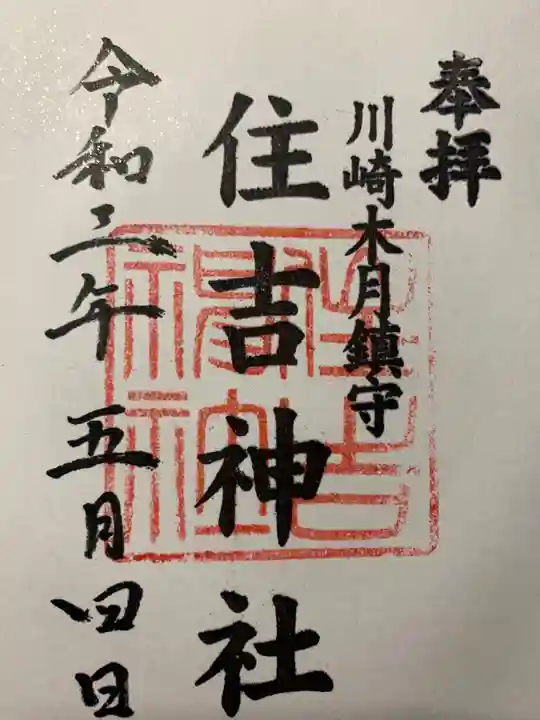 奉拝
川崎木月鎮守
住吉神社
令和三年五月四日